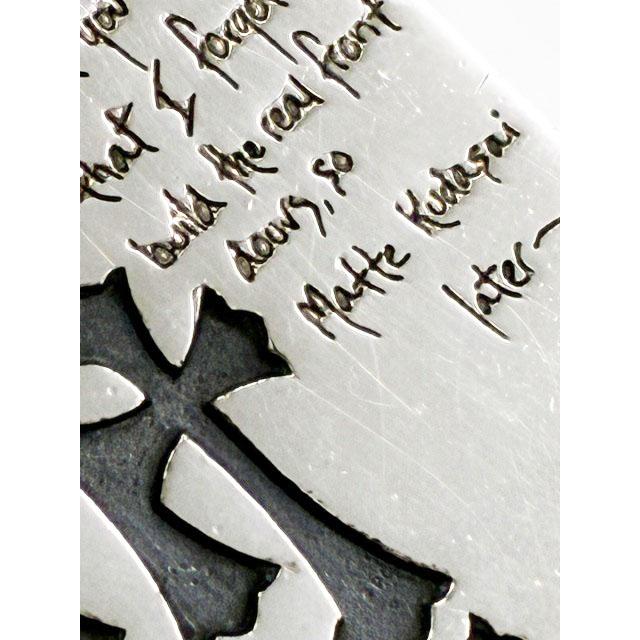 you forget
that I
build the real front
doors, so
Matte Kudasai
later~